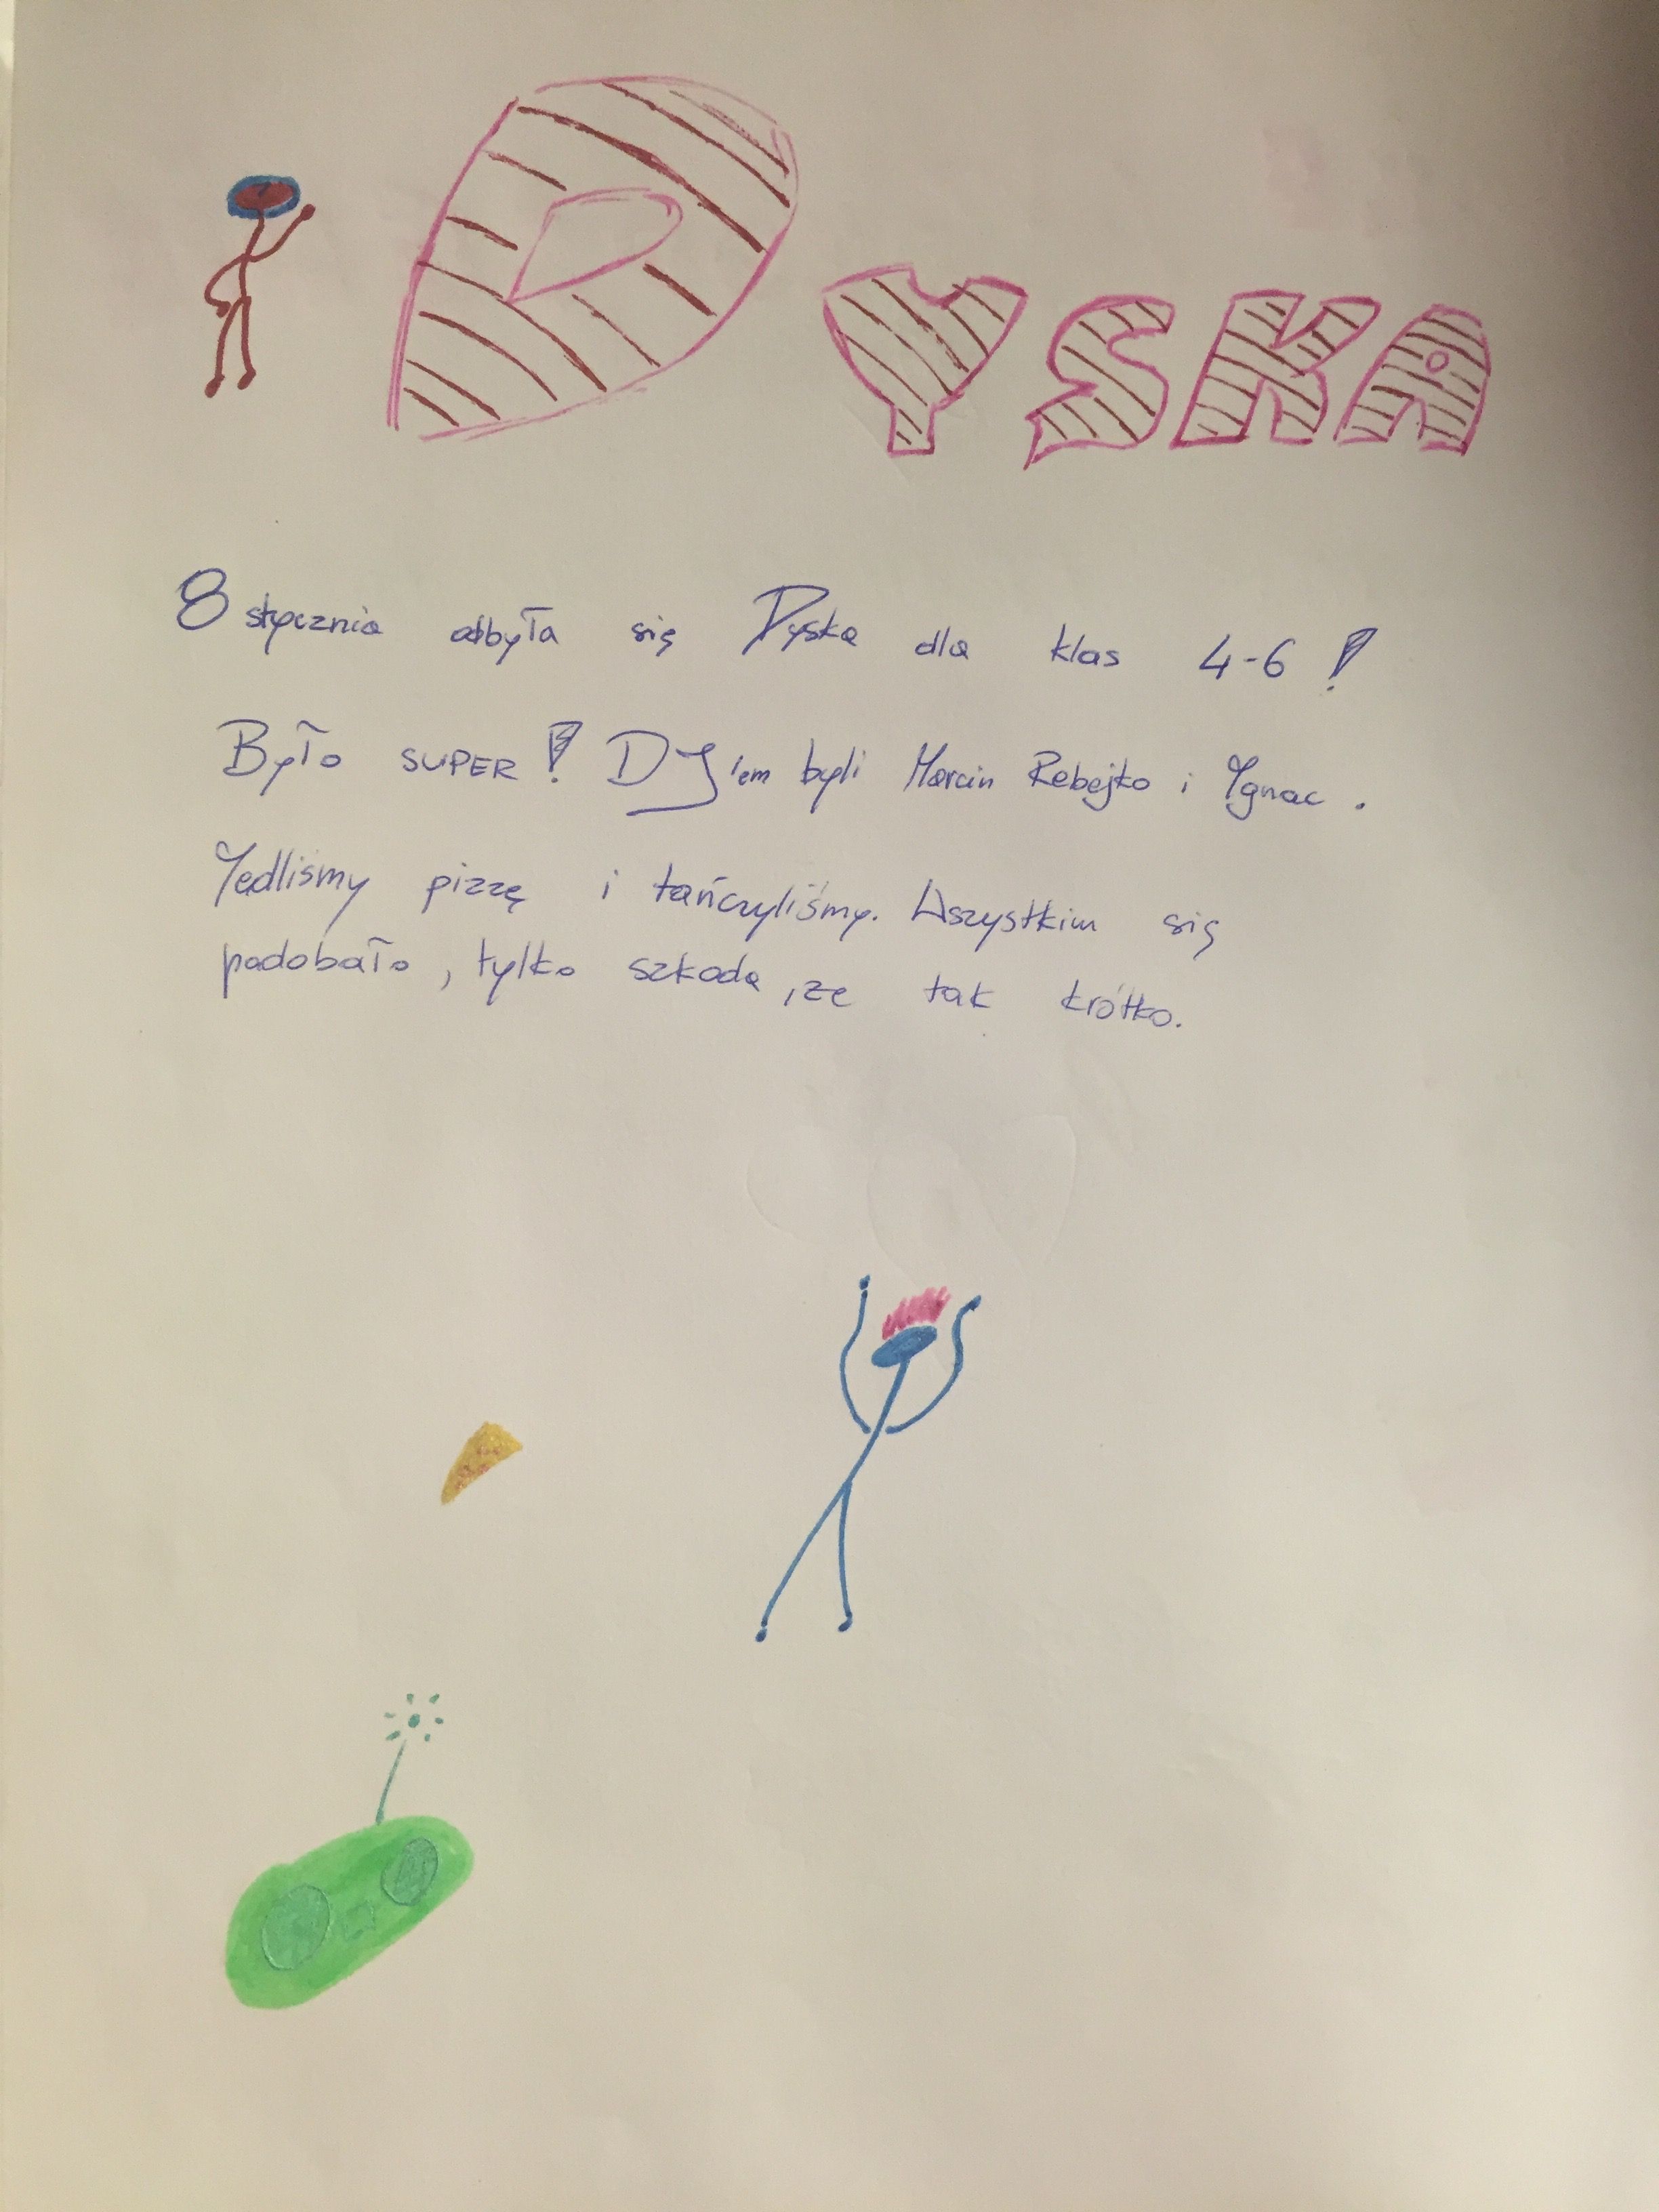 DYSKA
8 stycznia odbyła się Dyska dla klas 4-6!
Było SUPER! DJ'em byli Marcin Rebejko i Ignac.
Jedliśmy pizzę i tańczyliśmy. Wszystkim się
podobało, tylko szkoda, że tak krótko.